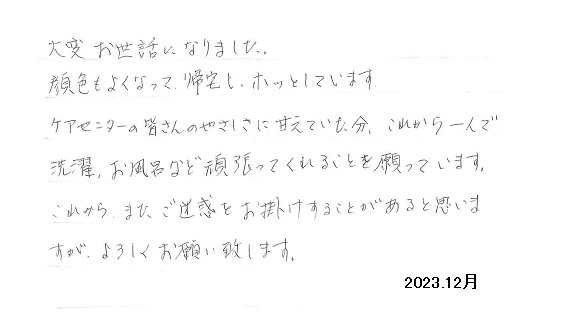 大変お世話になりました。
顔色もよくなって、帰宅し、ホッとしています
ケアセンターの皆さんのやさしさに甘えていた分、これから一人で
洗濯、お風呂など頑張ってくれることを願っています。
これから、また、ご迷惑をお掛けすることがあると思いま
すが、よろしくお願い致します。
2023.12月